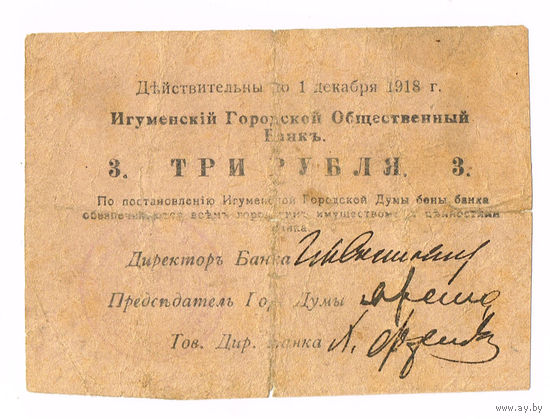 Дѣйствительны до 1 декабря 1918 г.
Игуменскій Городской Общественный
Банкъ.
3. ТРИ РУБЛЯ. 3.
По постановленію Игуменской Городской Думы боны банка
обезпечиваются всѣмъ городскимъ имуществомъ и цѣнностями
банка
Директоръ Банка
Предсѣдатель Гор. Думы
Тов. Дир. Банка
www.ay.by